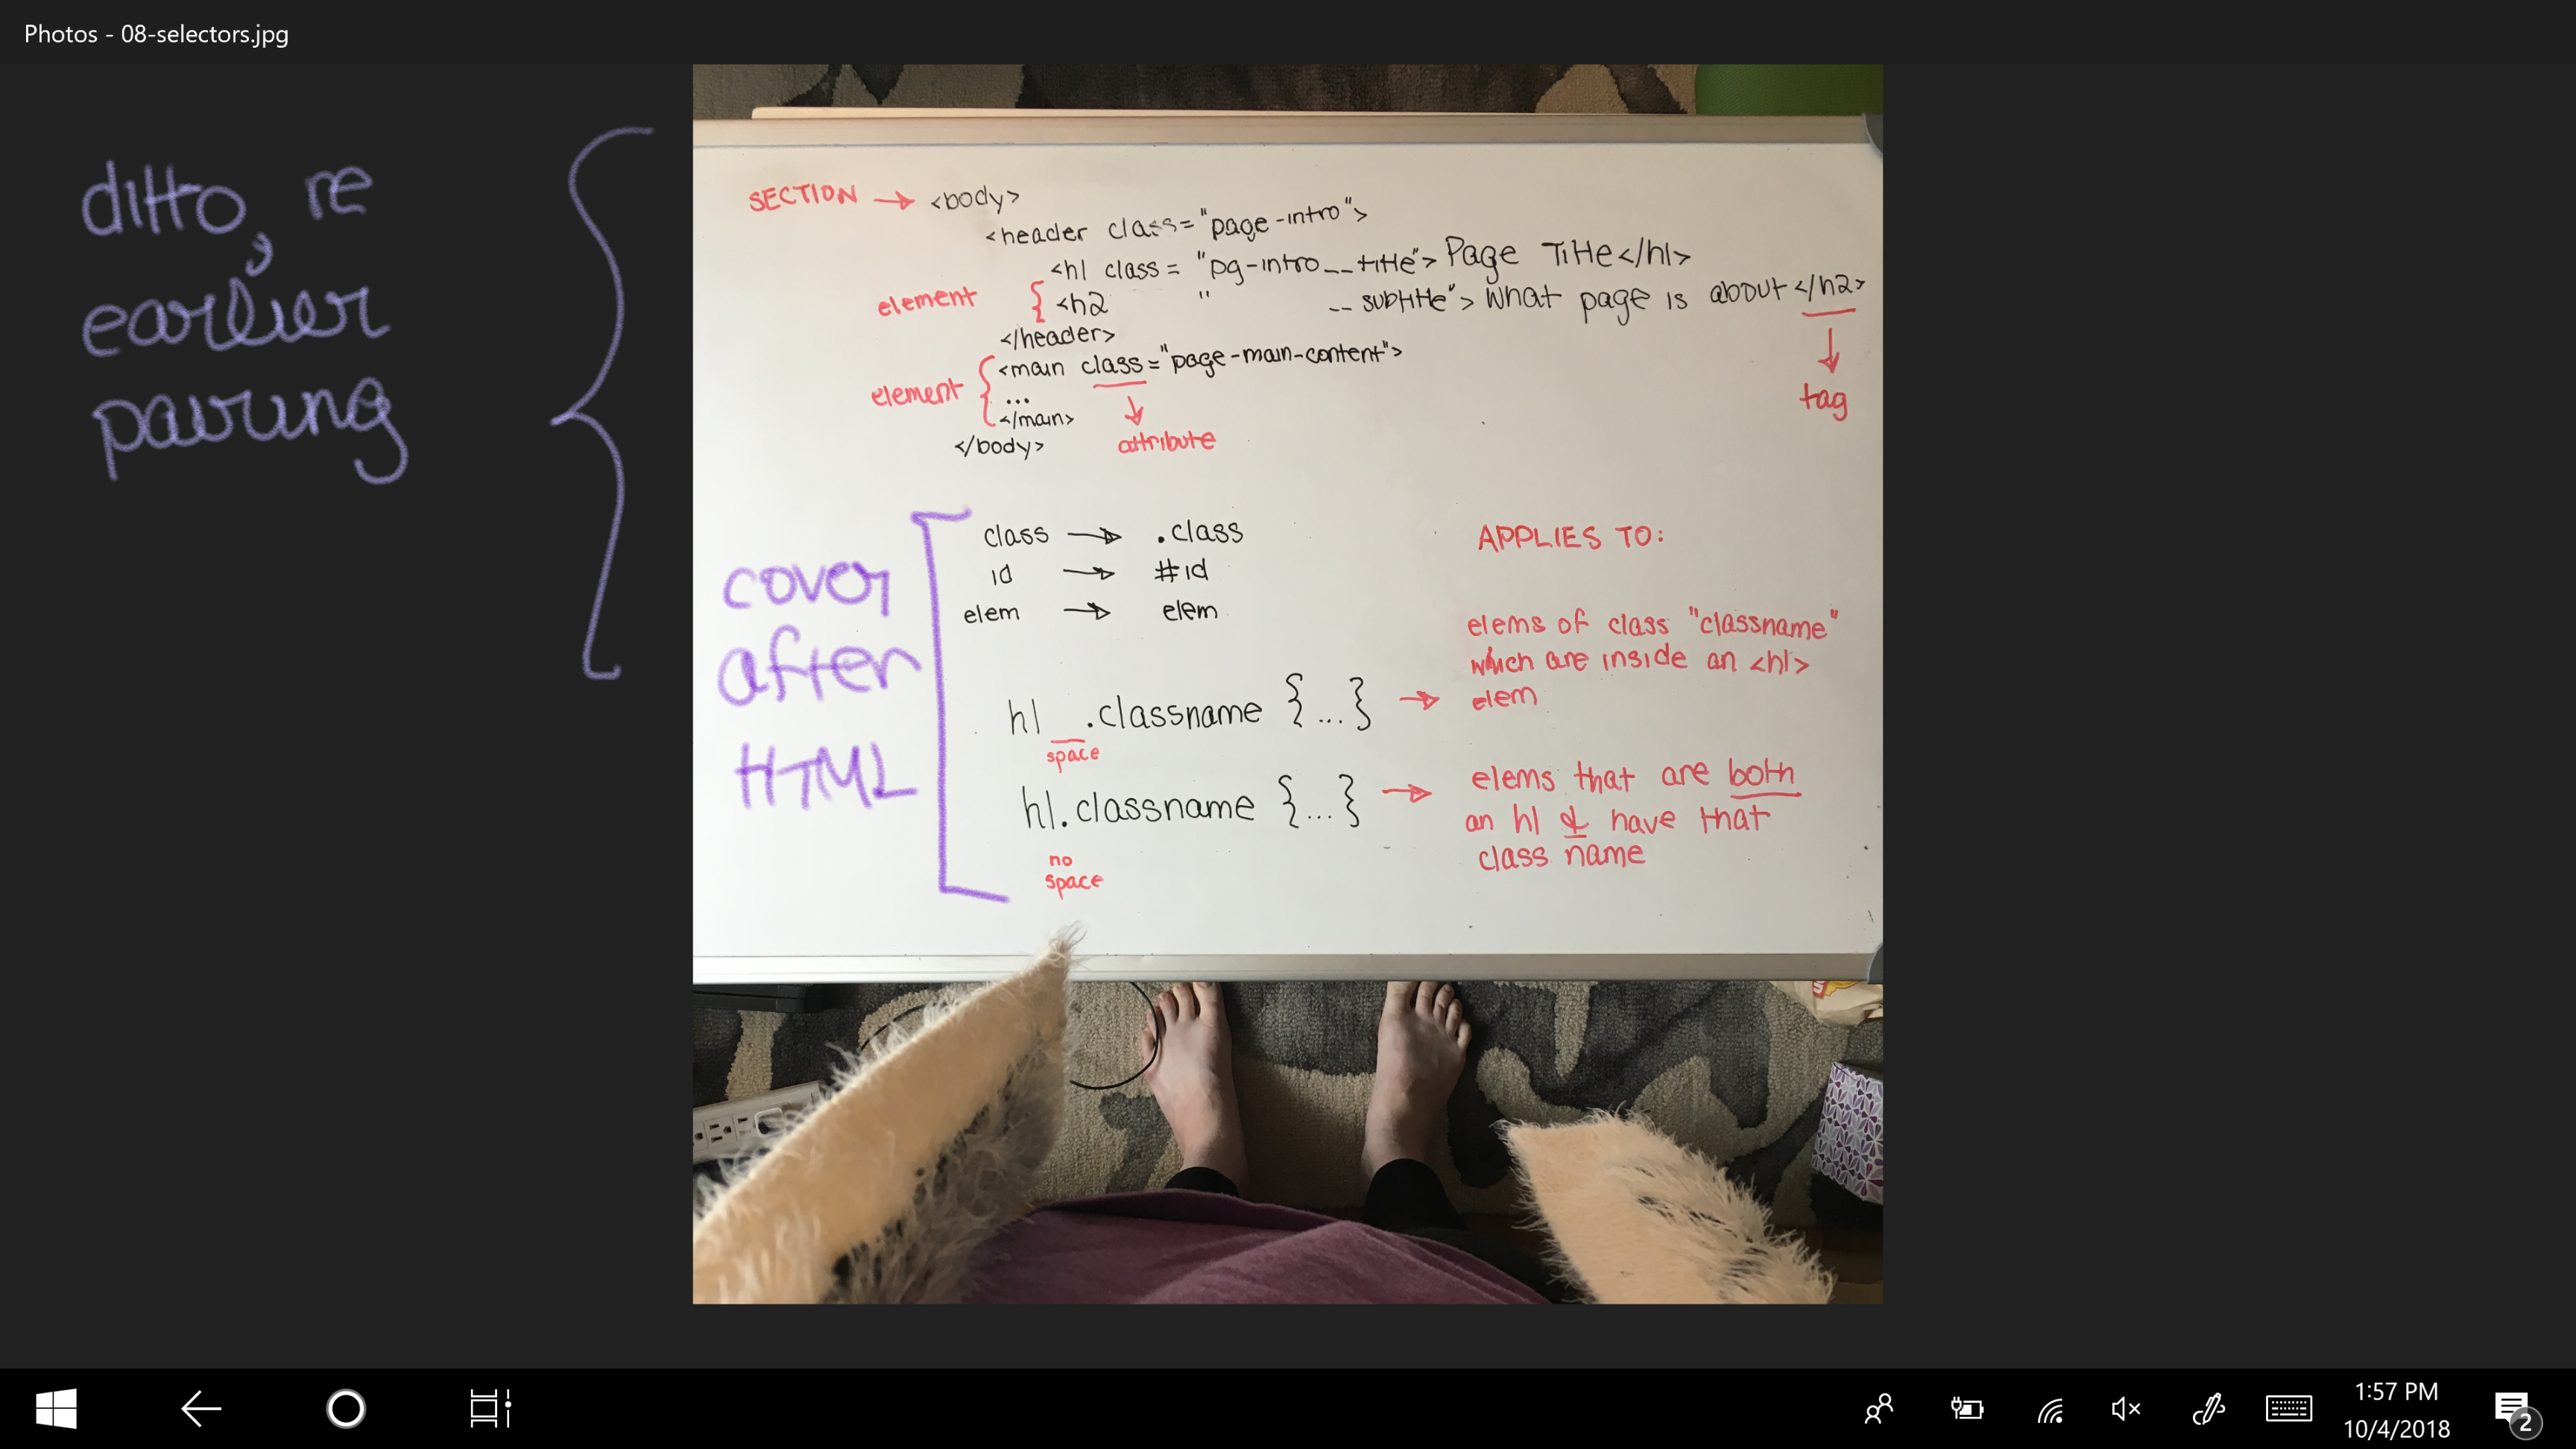 Photos - 08-selectors.jpg
ditto, re
earlier
pairing
SECTION → <body>
<header class="page-intro">
<h1 class= "pg-intro__title"> Page Title</h1>
element { <h2 " __subtitle"> What page is about </h2>
</header>
tag
element { <main class="page-main-content">
...
</main>
attribute
</body>
cover
after
HTML
class → .class
id → #id
elem → elem
APPLIES TO:
h1 .classname {...} →
space
elems of class "classname"
which are inside an <h1>
elem
h1.classname {...} →
no
space
elems that are both
an h1 & have that
class name
1:57 PM
10/4/2018
2